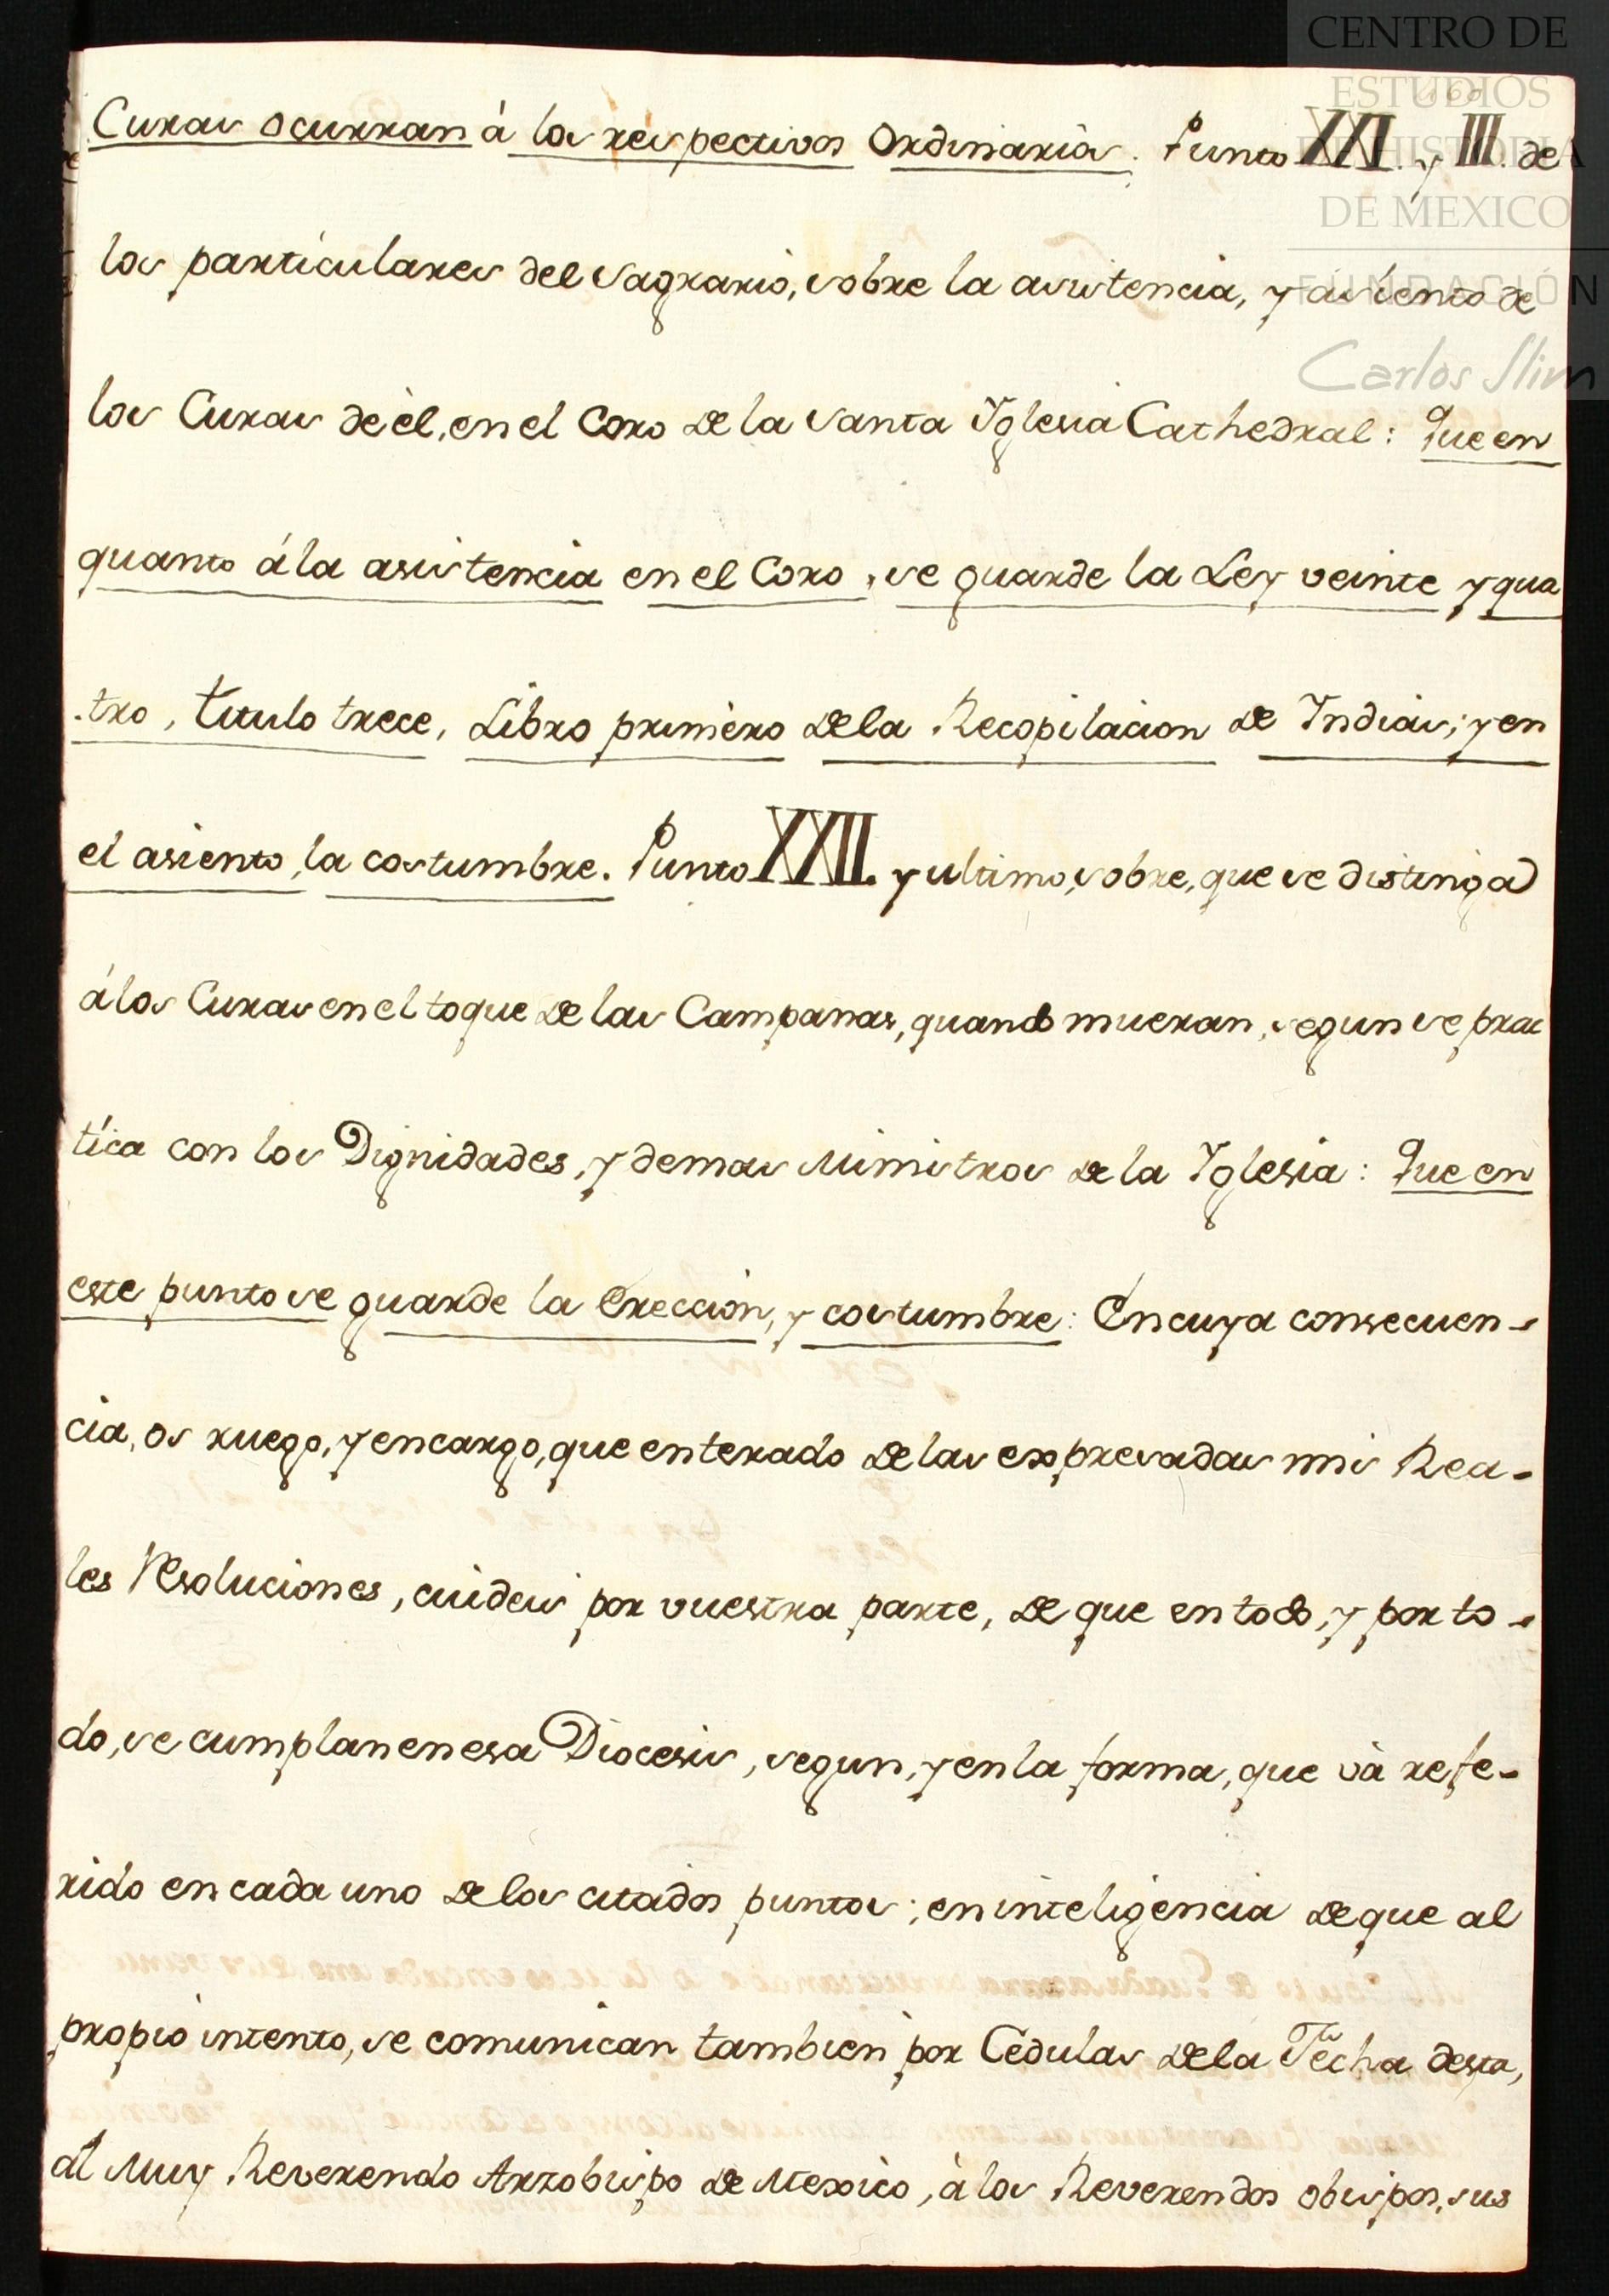 CENTRO DE
ESTUDIOS
DE HISTORIA
DE MEXICO
FUNDACIÓN
Carlos Slim
Curas ocurran á los respectivos Ordinarios. Punto XXI. y III. de
los particulares del Sagrario, sobre la asistencia, y asiento de
los Curas de èl, en el Coro de la Santa Yglesia Cathedral: Que en
quanto á la asistencia en el Coro, se guarde la Ley veinte y qua
tro, titulo trece, Libro primero de la Recopilacion de Indias; y en
el asiento, la costumbre. Punto XXII. y ultimo, sobre, que se distinga
á los Curas en el toque de las Campanas, quando mueran, segun se prac
tíca con los Dignidades, y demas Ministros de la Yglesia: Que en
este punto se guarde la Ereccion, y costumbre: En cuya consecuen-
cia, os ruego, y encargo, que enterado de las expresadas mis Rea-
les Resoluciones, cuideis por vuestra parte, de que en todo, y por to-
do, se cumplan en esa Diocesis, segun, y en la forma, que và refe-
rido en cada uno de los citados puntos; en inteligencia de que al
propio intento, se comunican tambien por Cedulas de la Fecha desta,
al Muy Reverendo Arzobispo de Mexico, à los Reverendos obispos, sus